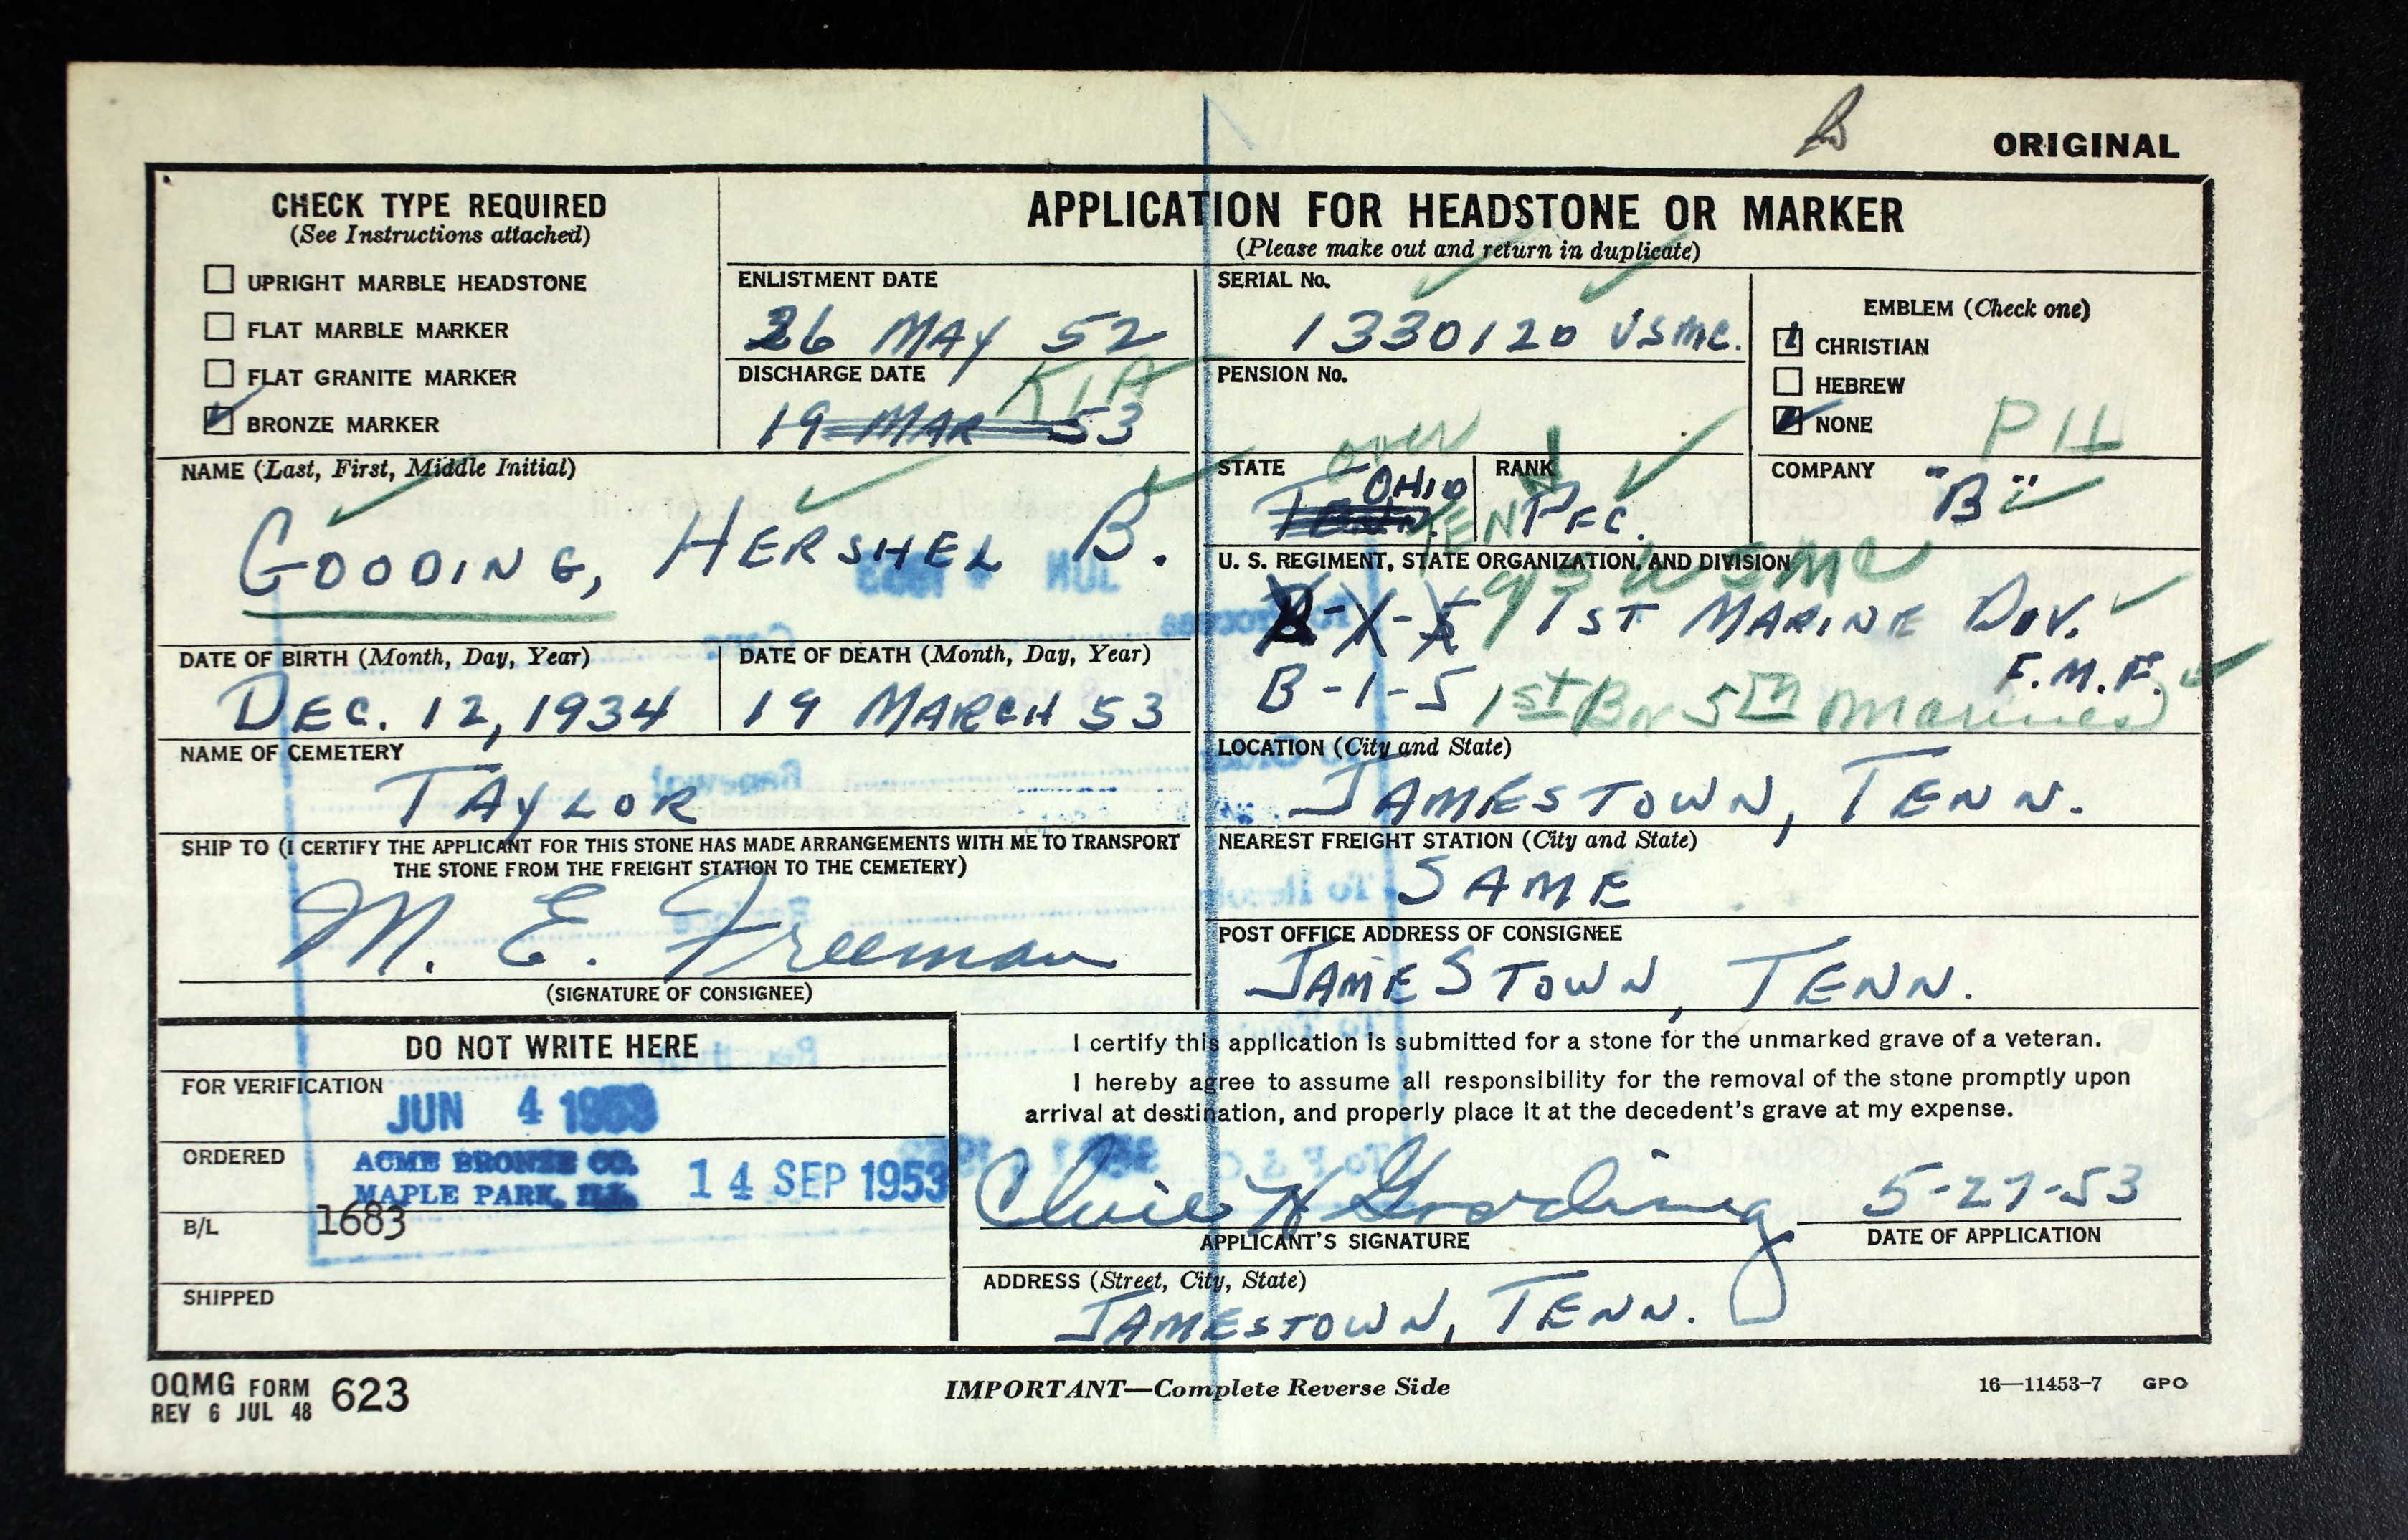 ORIGINAL
CHECK TYPE REQUIRED
(See Instructions attached)
UPRIGHT MARBLE HEADSTONE
FLAT MARBLE MARKER
FLAT GRANITE MARKER
BRONZE MARKER
APPLICATION FOR HEADSTONE OR MARKER
(Please make out and return in duplicate)
ENLISTMENT DATE
26 MAY 52
DISCHARGE DATE
KIA
19 MAR 53
SERIAL No.
1330120 USMC.
PENSION No.
EMBLEM (Check one)
CHRISTIAN
HEBREW
NONE
PH
NAME (Last, First, Middle Initial)
GOODING, HERSHEL B.
STATE
over
OHIO
TENN.
TEN
RANK
PFC.
COMPANY
"B"
U. S. REGIMENT, STATE ORGANIZATION, AND DIVISION
USMC
1ST MARINE DIV.
F.M.F.
B-1-5 1st Bn 5th Marines
DATE OF BIRTH (Month, Day, Year)
DEC. 12, 1934
DATE OF DEATH (Month, Day, Year)
19 MARCH 53
NAME OF CEMETERY
TAYLOR
LOCATION (City and State)
JAMESTOWN, TENN.
SHIP TO (I CERTIFY THE APPLICANT FOR THIS STONE HAS MADE ARRANGEMENTS WITH ME TO TRANSPORT
THE STONE FROM THE FREIGHT STATION TO THE CEMETERY)
M. E. Freeman
(SIGNATURE OF CONSIGNEE)
NEAREST FREIGHT STATION (City and State)
SAME
POST OFFICE ADDRESS OF CONSIGNEE
JAMESTOWN, TENN.
DO NOT WRITE HERE
FOR VERIFICATION
JUN 4 1953
ORDERED
ACME BRONZE CO.
MAPLE PARK, ILL.
14 SEP 1953
B/L
1683
SHIPPED
I certify this application is submitted for a stone for the unmarked grave of a veteran.
I hereby agree to assume all responsibility for the removal of the stone promptly upon
arrival at destination, and properly place it at the decedent's grave at my expense.
H Gooding
5-27-53
APPLICANT'S SIGNATURE
DATE OF APPLICATION
ADDRESS (Street, City, State)
JAMESTOWN, TENN.
OQMG FORM 623
REV 6 JUL 48
IMPORTANT—Complete Reverse Side
16—11453-7 GPO